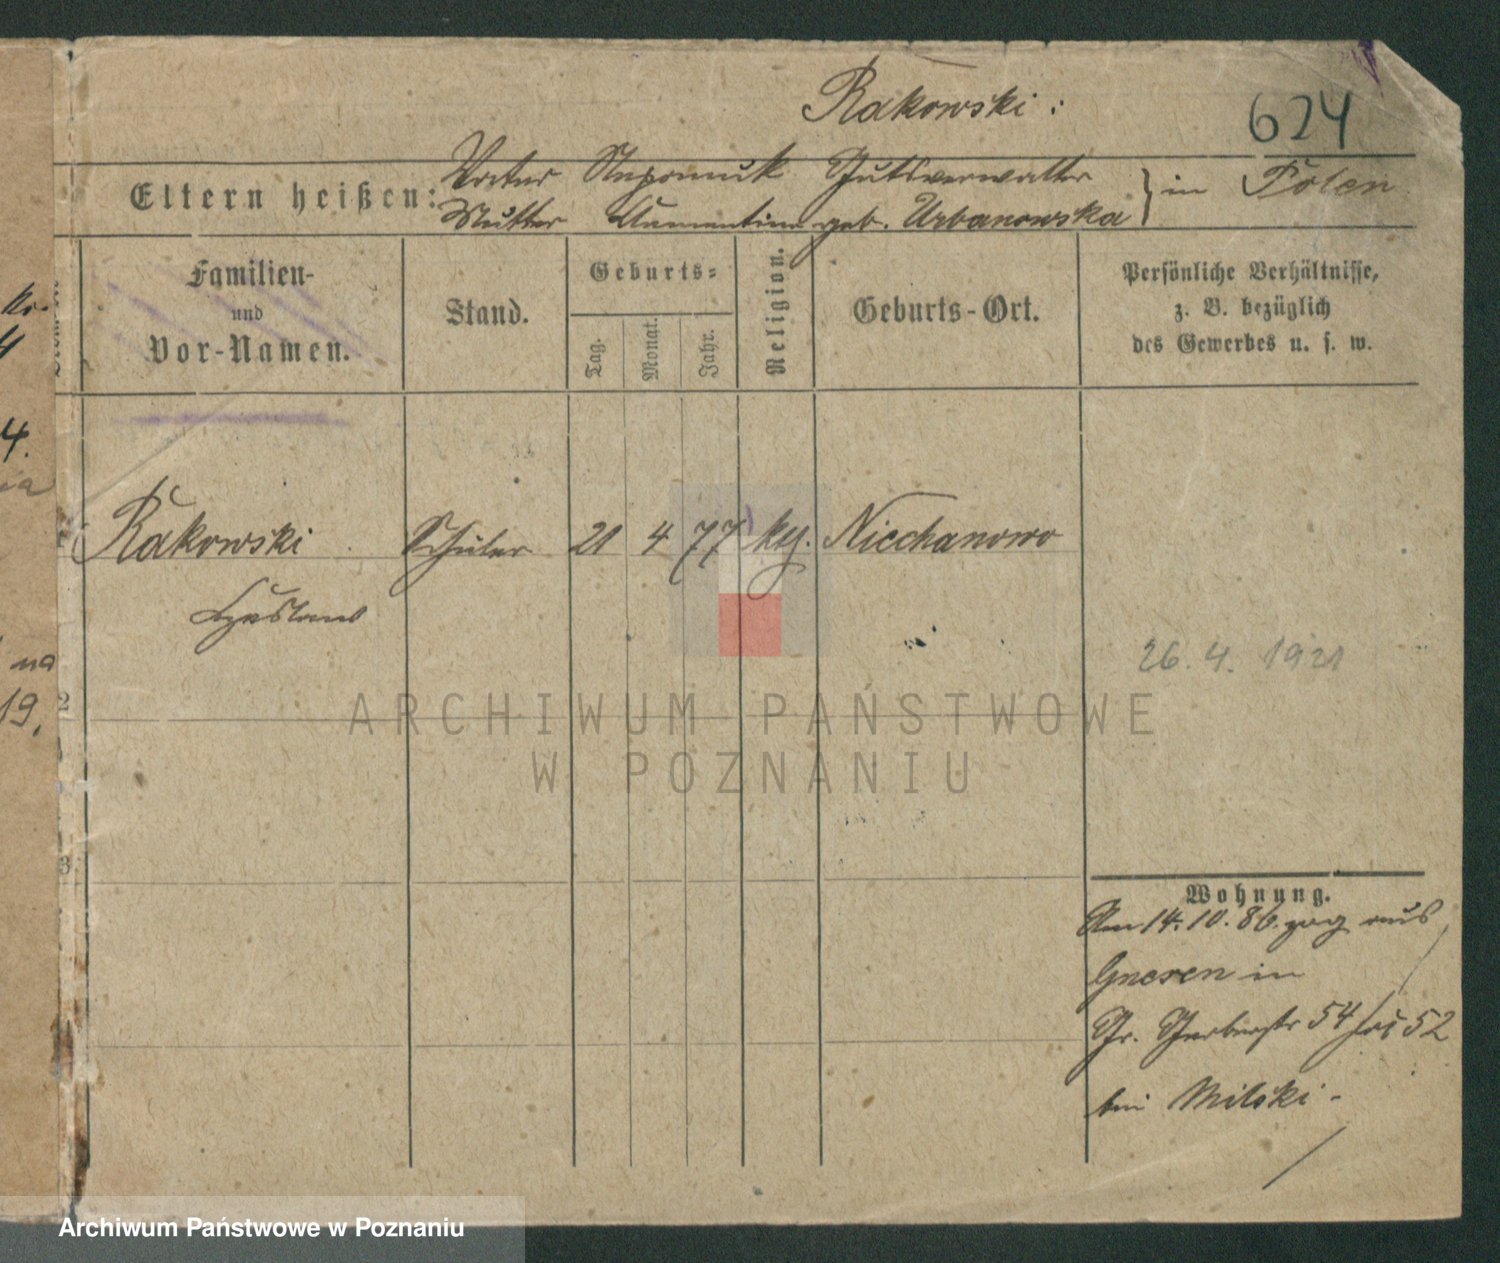 Rakowski:
624
Eltern heißen:
Vater Nepomuk Gutsverwalter
Mutter Clementine geb. Urbanowska
in Polen
Familien-
und
Vor-Namen.
Stand.
Geburts-
Tag.
Monat.
Jahr.
Religion.
Geburts-Ort.
Persönliche Verhältnisse,
z. B. bezüglich
des Gewerbes u. s. w.
Rakowski Schüler 21 4 77 kth. Niechanowo
Czeslaus
26. 4. 1921
2
3
Wohnung.
Am 14. 10. 86. zog aus
Gnesen in
Gr. Gerberstr 54/ 52
bei Milski -
4.
na
19.
ARCHIWUM PAŃSTWOWE
W POZNANIU
Archiwum Państwowe w Poznaniu